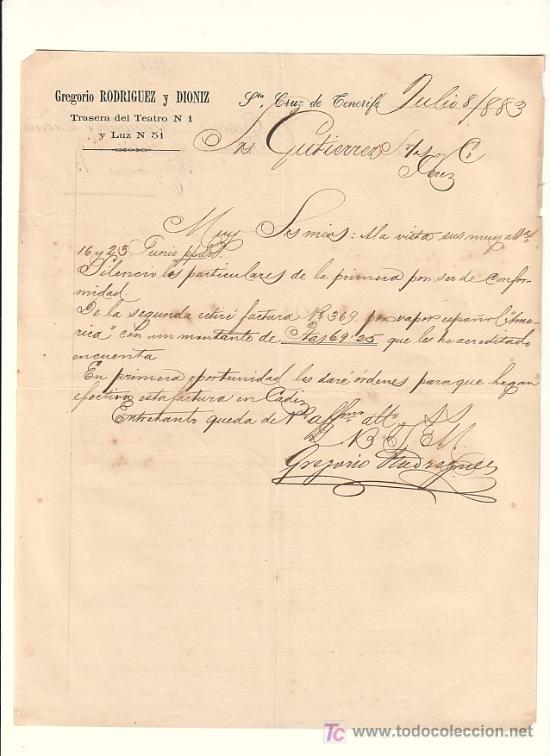 Gregorio RODRIGUEZ y DIONIZ
Trasera del Teatro N 1
y Luz N 51
Sta. Cruz de Tenerife Julio 8/883
Srs. Gutierrez Hos y Co
Jerez
Muy Srs mios: A la vista sus muy attas
16 y 23 Junio ppdo.
Silencio los particulares de la primera por ser de confor-
midad.
De la segunda retiré factura No 369 por vapor español "Ame-
rica" con un montante de Ptas 69:25 que les he acreditado
en cuenta
En primera oportunidad les daré órdenes para que hagan
efectivo esta factura en Cadiz
Entretanto queda de V. affmo atto SS
Q B S M
Gregorio Rodriguez
TC www.todocoleccion.net